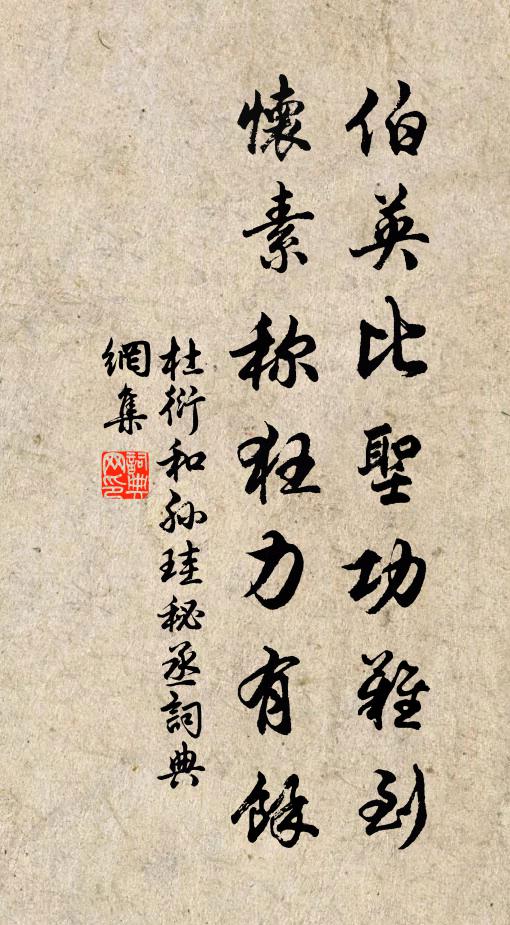 伯英比聖功難到
懷素称狂力有餘
杜衍和孙珪秘丞詞典
網集
詞典
网印